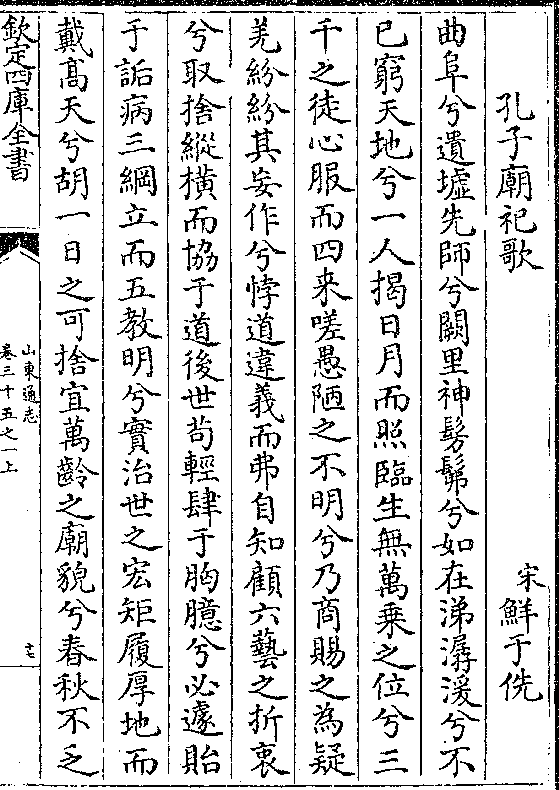 孔子廟祀歌
宋鮮于侁
曲阜兮遺墟先師兮闕里神髣髴兮如在涕潺湲兮不
已窮天地兮一人揭日月而照臨生無萬乗之位兮三
千之徒心服而四来嗟愚陋之不明兮乃商賜之為疑
羌紛紛其妄作兮悖道違義而弗自知顧六藝之折衷
兮取捨縱橫而協于道後世苟輕肆于胸臆兮必遽貽
于詬病三綱立而五教明兮實治世之宏矩履厚地而
戴髙天兮胡一日之可捨宜萬齡之廟貌兮春秋不乏
欽定四庫全書
山東通志
卷三十五之一上